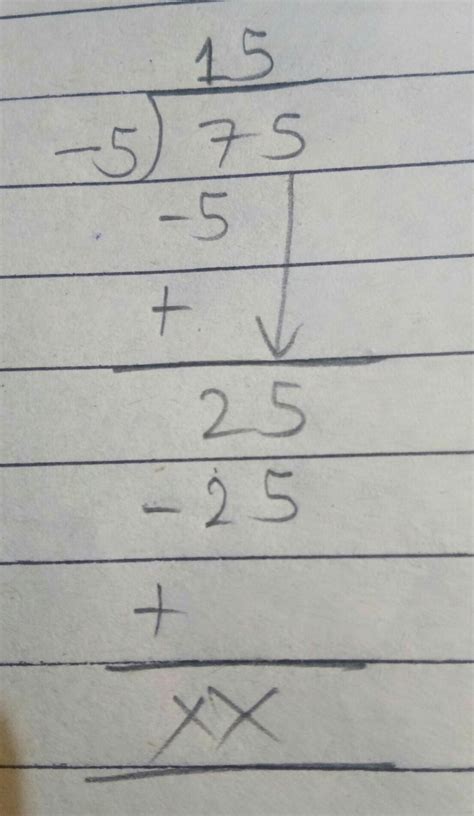 15
-5) 75
-5
+
25
-25
+
XX